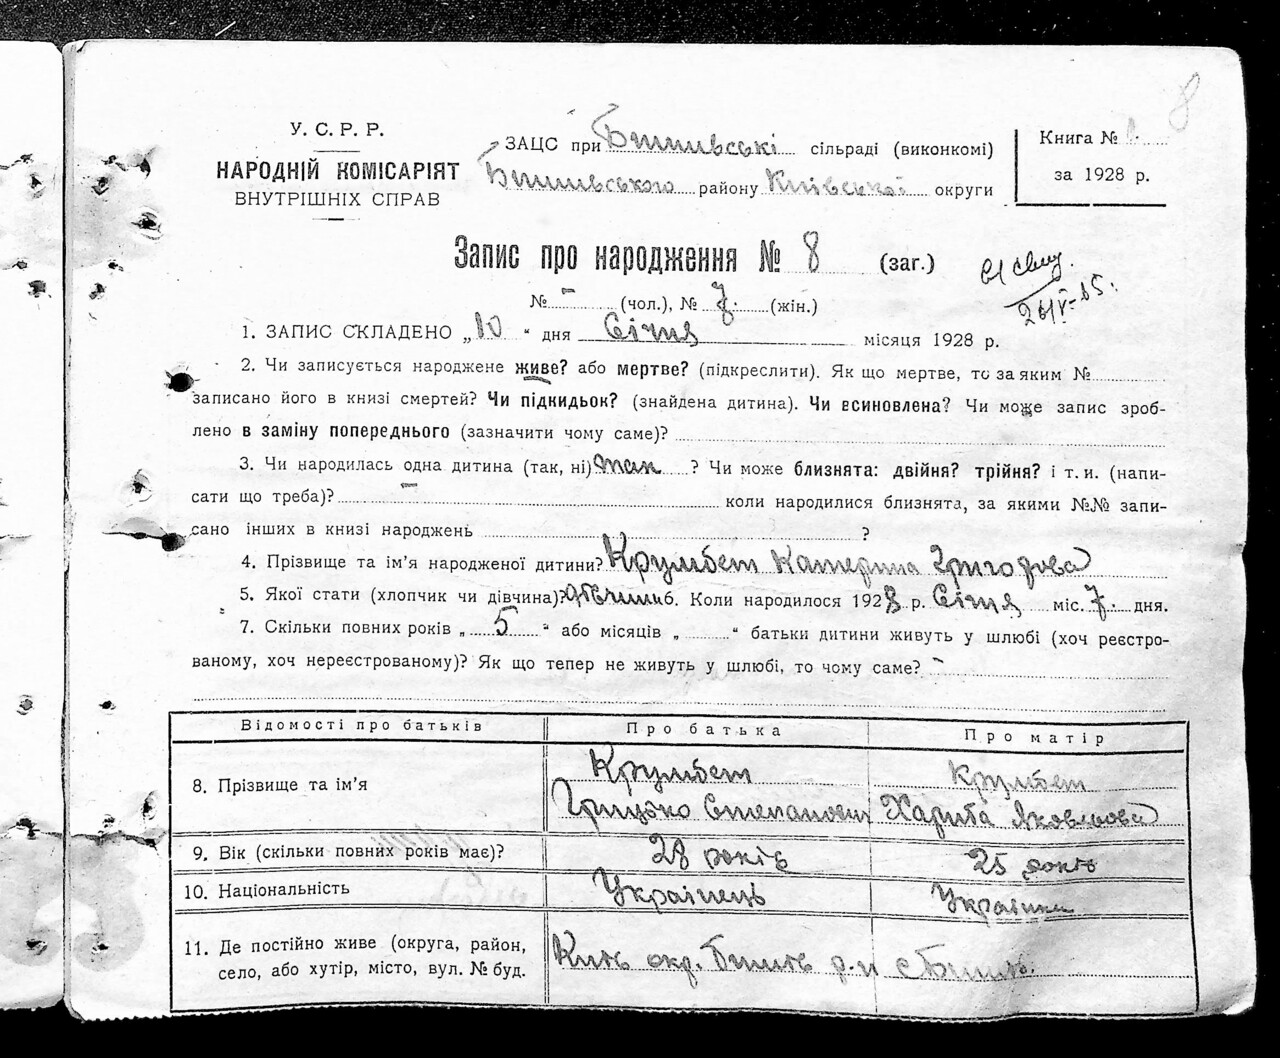 8
У. С. Р. Р.
НАРОДНІЙ КОМІСАРІЯТ
ВНУТРІШНІХ СПРАВ
ЗАЦС при Бишивські сільраді (виконкомі)
Бишивського району Київської округи
Книга №
за 1928 р.
Запис про народження № 8 (заг.)
№ – (чол.), № 7. (жін.)
1. ЗАПИС СКЛАДЕНО „10“ дня Січня місяця 1928 р.
2. Чи записується народжене живе? або мертве? (підкреслити). Як що мертве, то за яким №
записано його в книзі смертей? Чи підкидьок? (знайдена дитина). Чи всиновлена? Чи може запис зроб-
лено в заміну попереднього (зазначити чому саме)?
3. Чи народилась одна дитина (так, ні) так ? Чи може близнята: двійня? трійня? і т. и. (напи-
сати що треба)? коли народилися близнята, за якими №№ запи-
сано інших в книзі народжень ?
4. Прізвище та ім’я народженої дитини? Крумбет Катерина Григорова
5. Якої стати (хлопчик чи дівчина)? дівчина 6. Коли народилося 1928 р. Січня міс. 7. дня.
7. Скільки повних років „ 5 “ або місяців „ “ батьки дитини живуть у шлюбі (хоч реєстро-
ваному, хоч нереєстрованому)? Як що тепер не живуть у шлюбі, то чому саме? –
Відомості про батьків Про батька Про матір
8. Прізвище та ім’я Крумбет Крумбет
Грицько Степанович Харита Яковльова
9. Вік (скільки повних років має)? 28 років 25 років
10. Національність Українець Українка
11. Де постійно живе (округа, район,
село, або хутір, місто, вул. № буд.
Київ окр. Бишів р-н с Бишів.